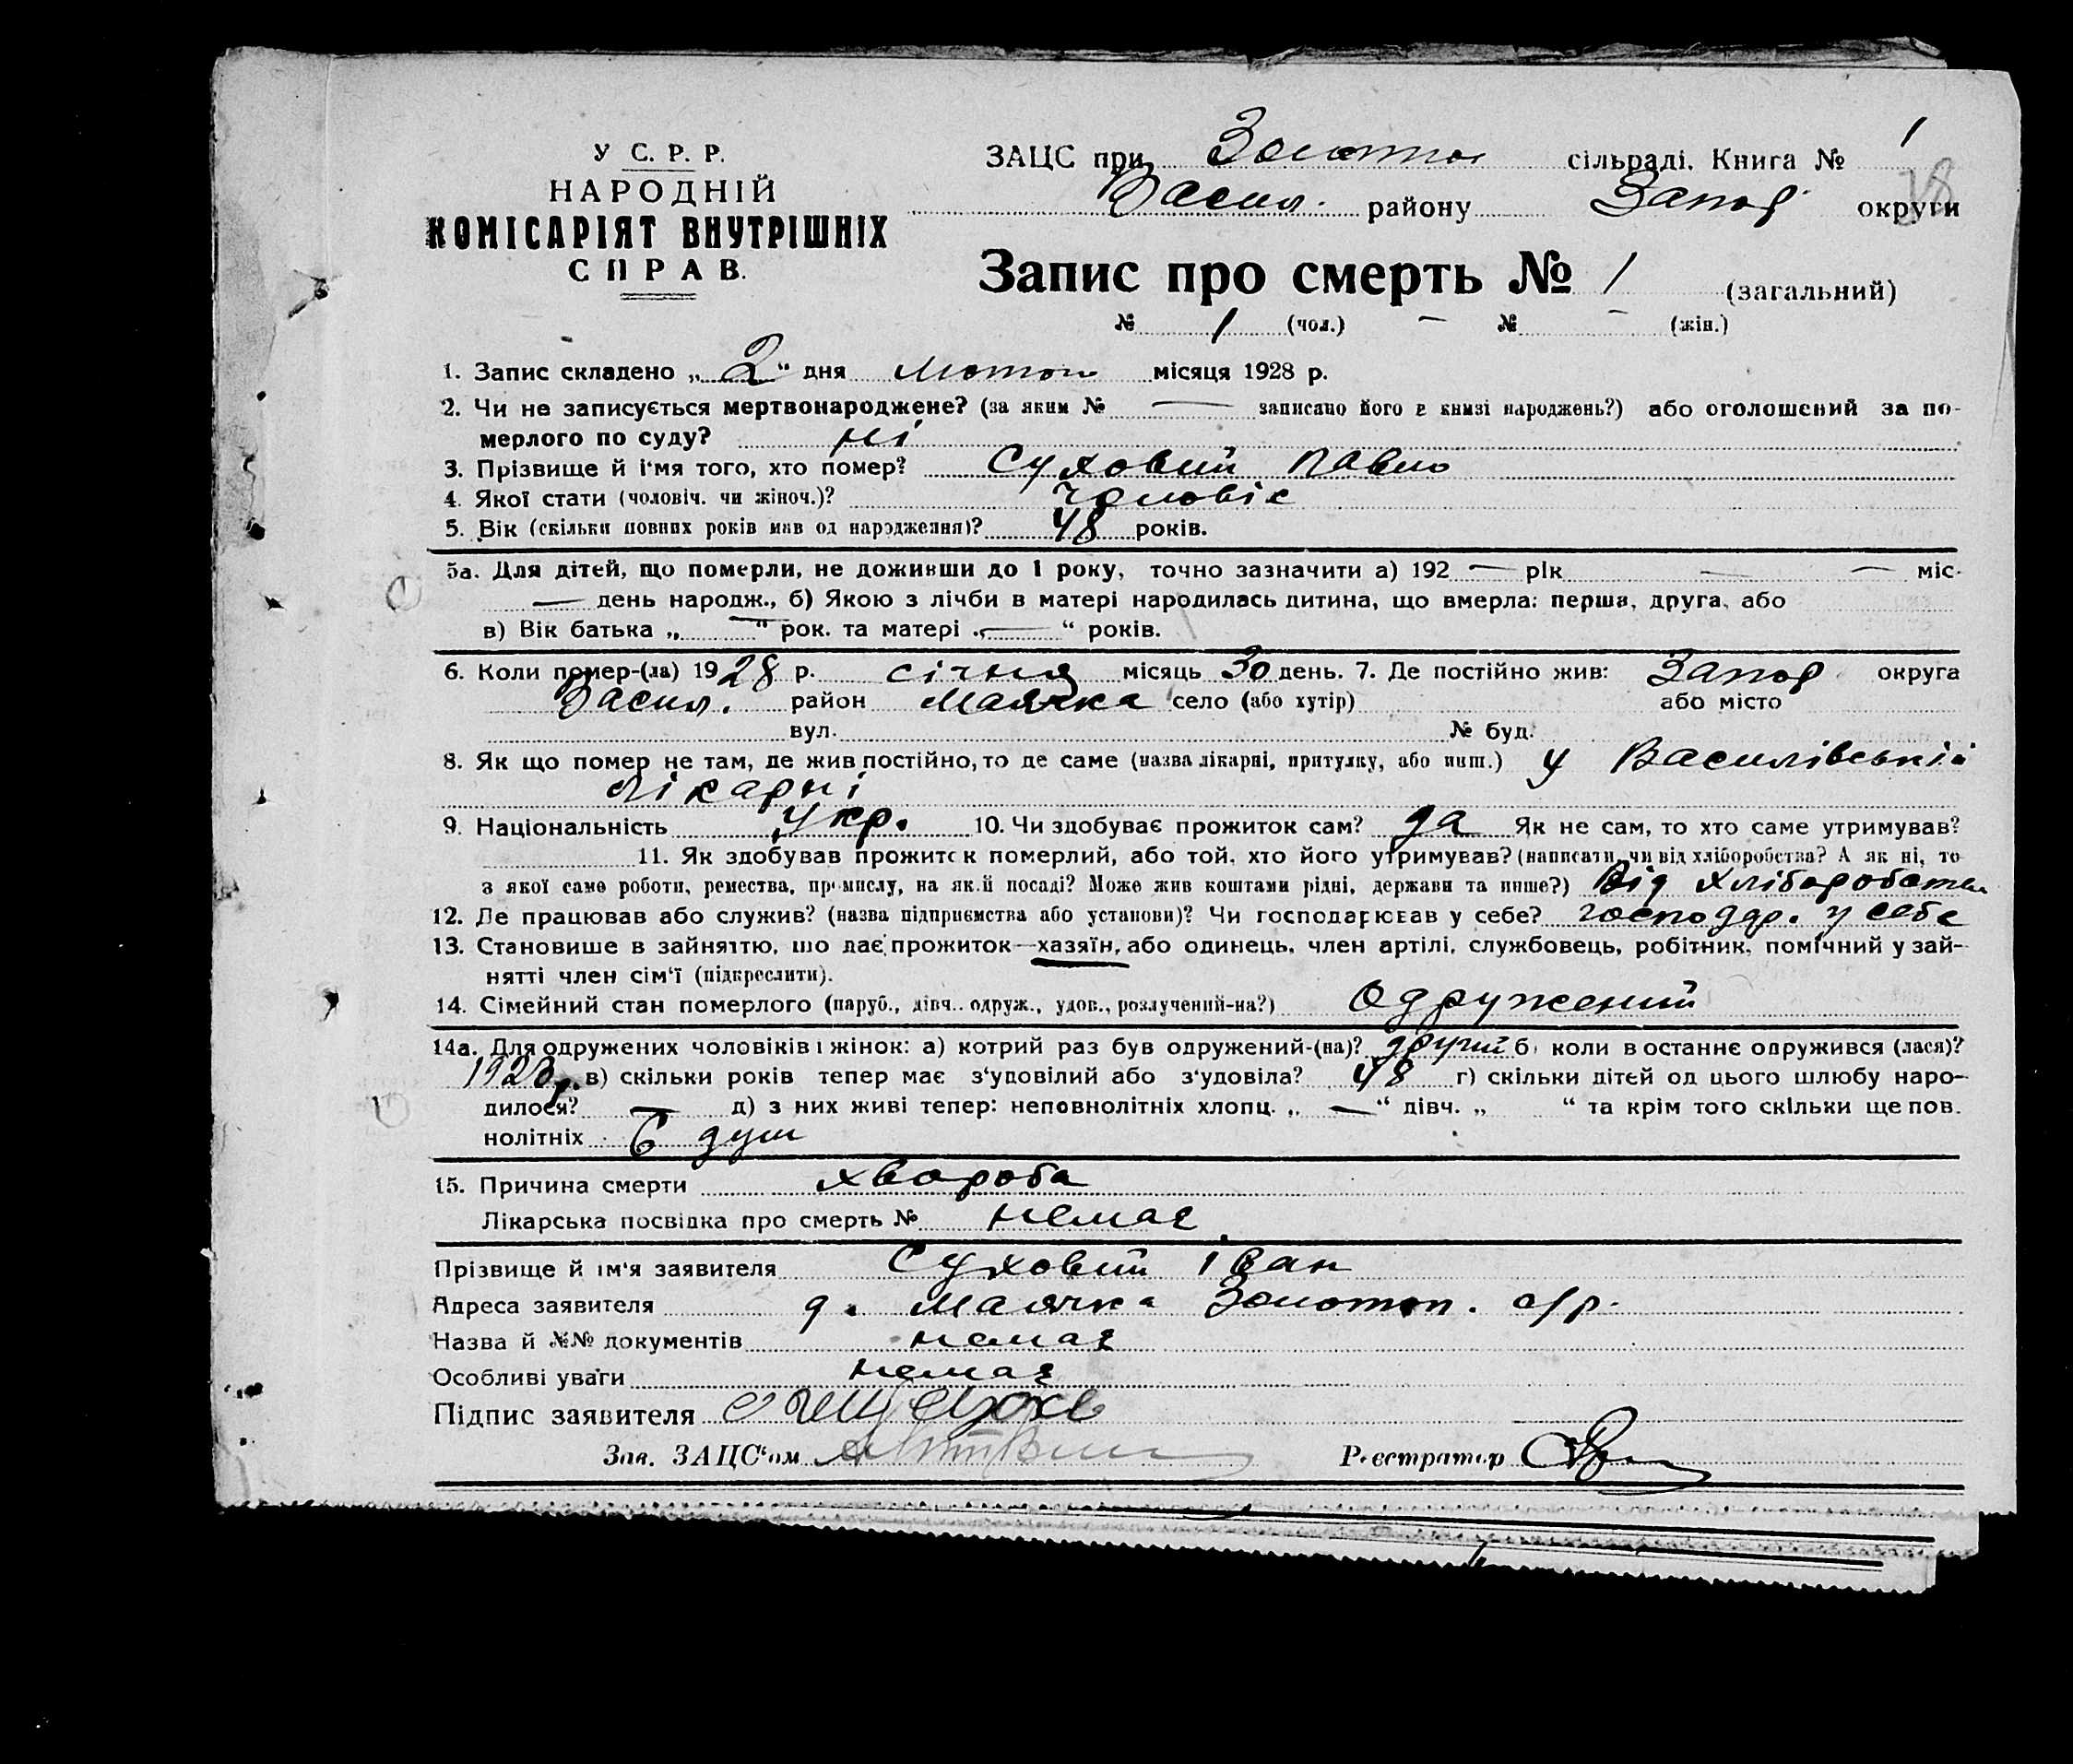 У С. Р. Р.
НАРОДНІЙ
КОМІСАРІЯТ ВНУТРІШНІХ
СПРАВ.
ЗАЦС при сільраді. Книга № 1
Васил. району Запор. округи
Запис про смерть № 1 (загальний)
№ 1 (чол.) — № — (жін.)
1. Запис складено „ 2 “ дня лютого місяця 1928 р.
2. Чи не записується мертвонароджене? (за яким № — записано його в книзі народжень?) або оголошений за по-
мерлого по суду? ні
3. Прізвище й ім'я того, хто помер? Суховий Павло
4. Якої стати (чоловіч. чи жіноч.)? чоловіч
5. Вік (скільки повних років мав од народження)? 48 років.
5а. Для дітей, що померли, не доживши до 1 року, точно зазначити а) 192 — рік — — міс-
— день народж., б) Якою з лічби в матері народилась дитина, що вмерла: перша, друга, або
в) Вік батька „ — “ рок. та матері „ — “ років.
6. Коли помер-(ла) 1928 р. січня місяць 30 день. 7. Де постійно жив: Запор округа
Васил. район Маячка село (або хутір) або місто
вул. № буд.
8. Як що помер не там, де жив постійно, то де саме (назва лікарні, притулку, або инш.) у Василівській
лікарні
9. Національність Укр. 10. Чи здобуває прожиток сам? да Як не сам, то хто саме утримував?
11. Як здобував прожиток померлий, або той, хто його утримував? (написати, чи від хліборобства? А як ні, то
з якої саме роботи, ремества, промислу, на якій посаді? Може жив коштами рідні, держави та инше?) Від хліборобства
12. Де працював або служив? (назва підприємства або установи)? Чи господарював у себе? господар. у себе
13. Становище в зайняттю, що дає прожиток—хазяїн, або одинець, член артілі, службовець, робітник, помічний у зай-
нятті член сім'ї (підкреслити).
14. Сімейний стан померлого (паруб., дівч.. одруж., удов., розлучений-на?) Одружений
14а. Для одружених чоловіків і жінок: а) котрий раз був одружений-(на)? другий б) коли в останнє одружився (лася)?
1923р. в) скільки років тепер має з'уповілий або з'удовіла? 48 г) скільки дітей од цього шлюбу наро-
дилося? — д) з них живі тепер: неповнолітніх хлопц. „ — “ дівч. „ “ та крім того скільки ще пов.
нолітніх 6 душ
15. Причина смерти хвороба
Лікарська посвідка про смерть № немає
Прізвище й ім'я заявителя Суховий Іван
Адреса заявителя д. Маячка Золотоп. с/р.
Назва й №№ документів немає
Особливі уваги немає
Підпис заявителя
Зав. ЗАЦС'ом Реєстратор